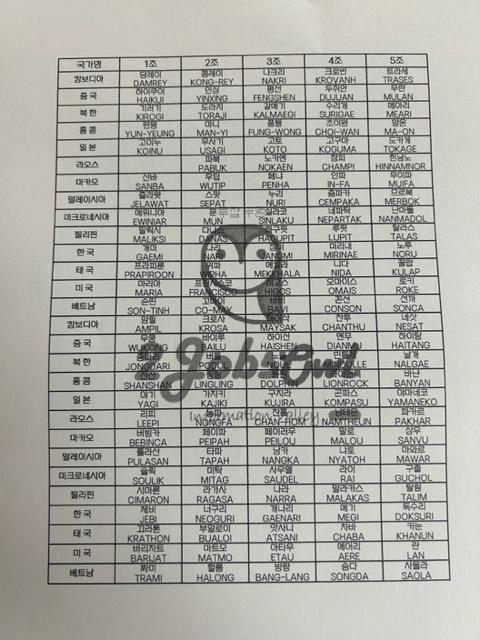 국가명 1조 2조 3조 4조 5조
캄보디아 담레이 콩레이 나크리 크로반 트라세
DAMREY KONG-REY NAKRI KROVANH TRASES
중국 하이쿠이 인싱 펑선 두쥐안 무란
HAIKUI YINXING FENGSHEN DUJUAN MULAN
북한 기러기 도라지 갈매기 수리개 메아리
KIROGI TORAJI KALMAEGI SURIGAE MEARI
홍콩 윈욍 마니 풍웡 초이완 망온
YUN-YEUNG MAN-YI FUNG-WONG CHOI-WAN MA-ON
일본 고이누 우사기 고토 고구마 도카게
KOINU USAGI KOTO KOGUMA TOKAGE
라오스 파북 노카엔 참피 힌남노
PABUK NOKAEN CHAMPI HINNAMNOR
마카오 산바 우딥 페냐 인파 무이파
SANBA WUTIP PENHA IN-FA MUIFA
말레이시아 즐라왓 스팟 누리 츰파카 므르복
JELAWAT SEPAT NURI CEMPAKA MERBOK
미크로네시아 에위니아 문 실라코 네파탁 난마돌
EWINIAR MUN SINLAKU NEPARTAK NANMADOL
필리핀 말릭시 다나스 하구핏 루핏 탈라스
MALIKSI DANAS HAGUPIT LUPIT TALAS
한국 개미 나리 장미 미리내 노루
GAEMI NARI JANGMI MIRINAE NORU
태국 프라피룬 위파 메칼라 니다 꿀랍
PRAPIROON WIPHA MEKKHALA NIDA KULAP
미국 마리아 프란시스코 히고스 오마이스 로키
MARIA FRANCISCO HIGOS OMAIS ROKE
베트남 손띤 꼬마이 바비 꼰선 선까
SON-TINH CO-MAY BAVI CONSON SONCA
캄보디아 암필 크로사 마이삭 찬투 네삿
AMPIL KROSA MAYSAK CHANTHU NESAT
중국 우쿵 바이루 하이선 뎬무 하이탕
WUKONG BAILU HAISHEN DIANMU HAITANG
북한 종다리 버들 노을 민들레 날개
JONGDARI PODUL NOUL MINDULLE NALGAE
홍콩 바냔
SHANSHAN LINGLING DOLPHIN LIONROCK BANYAN
일본 야기 가지키 구지라 곤파스 야마네코
YAGI KAJIKI KUJIRA KOMPASU YAMANEKO
라오스 리피 농파 찬홈 남테운 파카르
LEEPI NONGFA CHAN-HOM NAMTHEUN PAKHAR
마카오 버빙카 페이파 페이러우 말로 상우
BEBINCA PEIPAH PEILOU MALOU SANVU
말레이시아 풀라산 타파 낭카 냐토 마와르
PULASAN TAPAH NANGKA NYATOH MAWAR
미크로네시아 솔릭 미탁 사우델 라이 구촐
SOULIK MITAG SAUDEL RAI GUCHOL
필리핀 시마론 라가사 나라 말라카스 탈림
CIMARON RAGASA NARRA MALAKAS TALIM
한국 제비 너구리 개나리 메기 독수리
JEBI NEOGURI GAENARI MEGI DOKSURI
태국 끄라톤 부알로이 앗사니 차바 카눈
KRATHON BUALOI ATSANI CHABA KHANUN
미국 바리자트 마트모 아타우 에어리 란
BARIJAT MATMO ETAU AERE LAN
베트남 짜미 할롱 방랑 송다 사올라
TRAMI HALONG BANG-LANG SONGDA SAOLA
JobsOwl
Information Valley